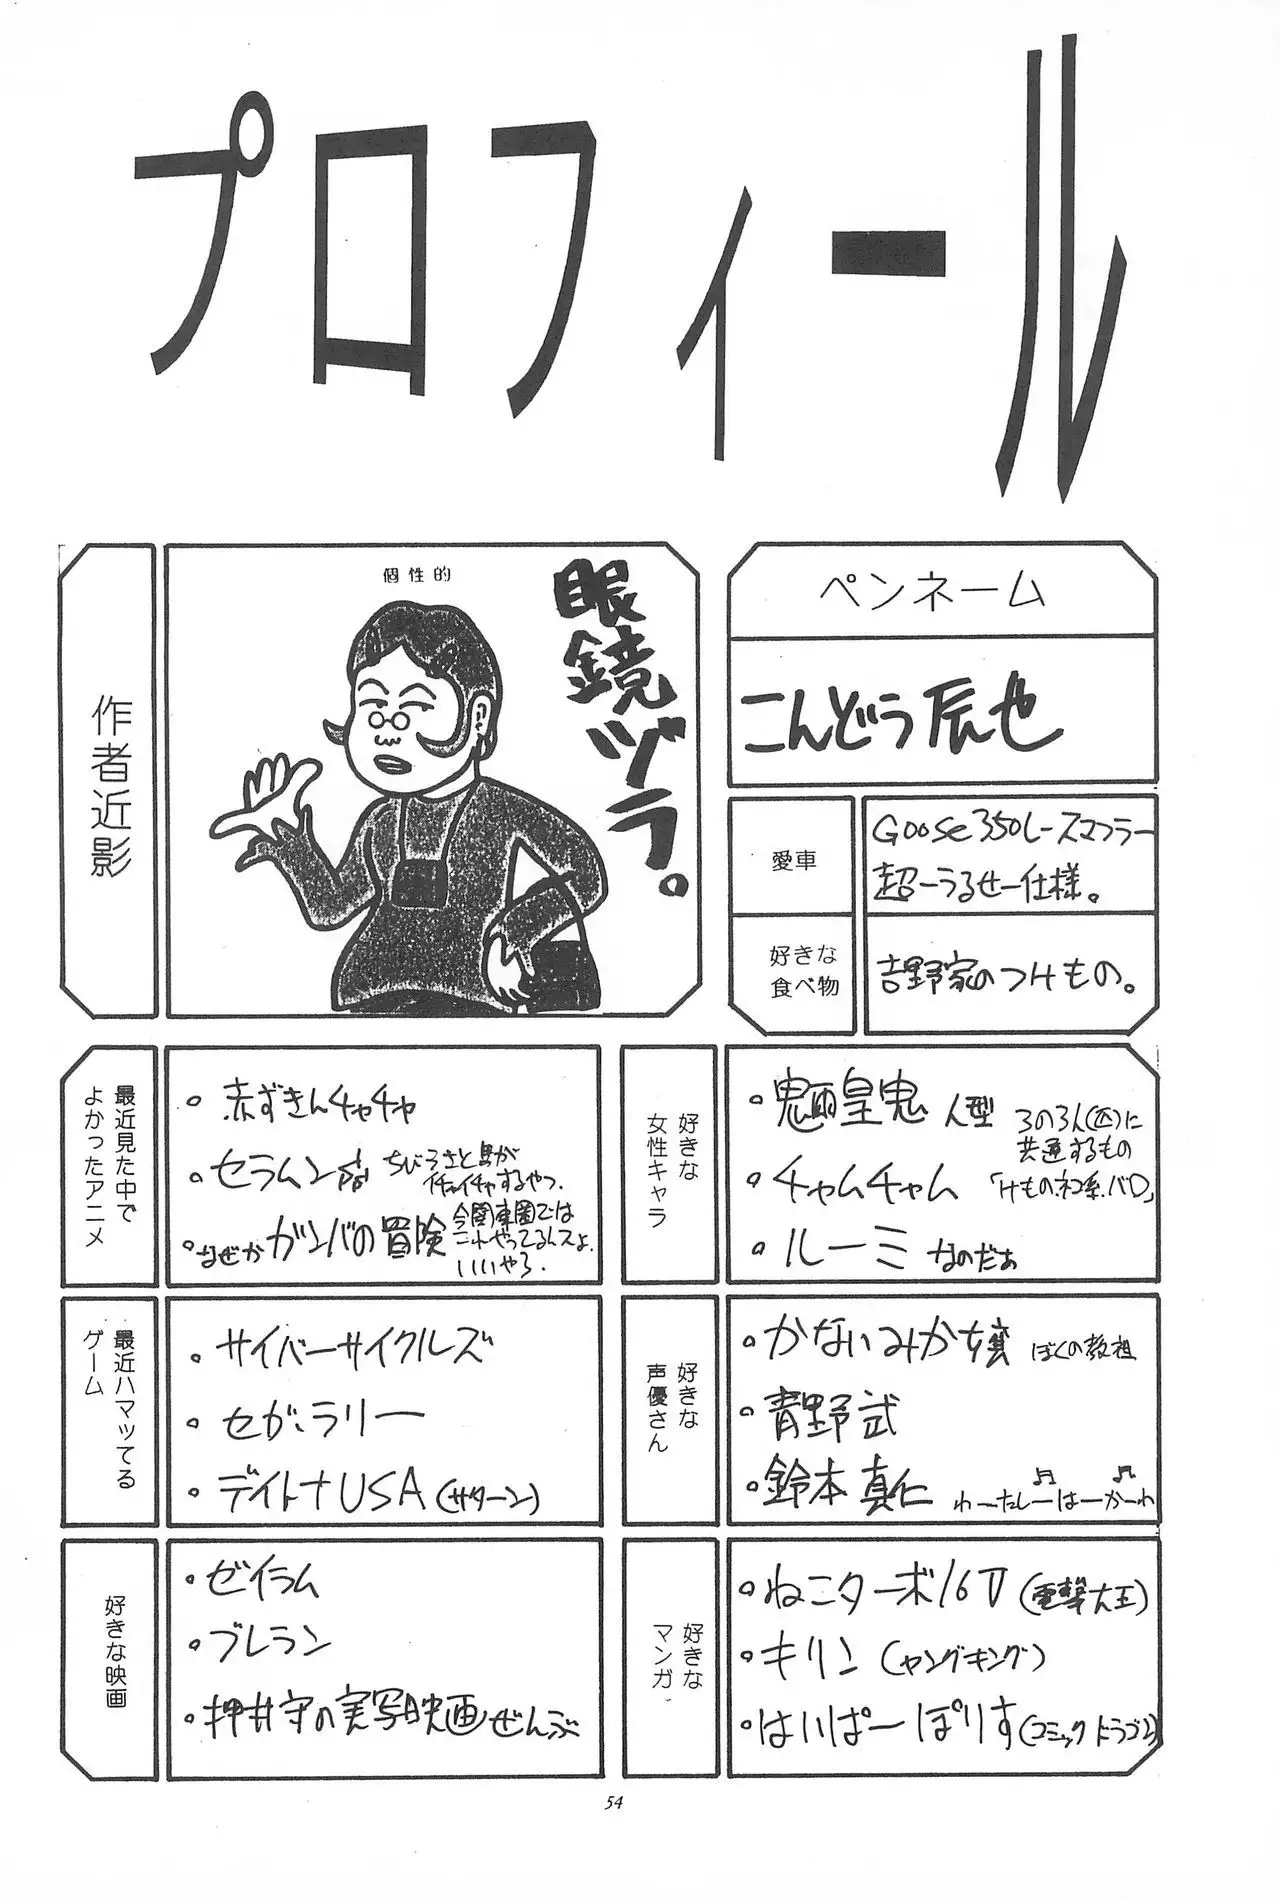 プロフィール
作者近影
個性的
眼鏡ヅラ。
ペンネーム
こんどう辰也
愛車
Goose350レースマフラー
超ーうるせー仕様。
好きな
食べ物
吉野家のつけもの。
最近見た中で
よかったアニメ
・赤ずきんチャチャ
・セラムン
ちびうさと馬が
イチャイチャするやつ。
・なぜかガンバの冒険
今関東圏では
これやってるんスよ。
いいやろ。
好きな
女性キャラ
・魎皇鬼 人型
・チャムチャム
・ルーミィ なのだぁ
この3人(匹)に
共通するもの
「けもの.ネコ系.バロ」
最近ハマッてる
ゲーム
・サイバーサイクルズ
・セガ・ラリー
・デイトナUSA(サターン)
好きな
声優さん
・かないみか嬢 ぼくの教祖
・青野武
・鈴木真仁 わーたしーはーかーわ
好きな映画
・ゼイラム
・ブレラン
・押井守の実写映画ぜんぶ
好きな
マンガ
・ねこターボ16V(電撃大王)
・キリン(ヤングキング)
・はいぱーぽりす(コミックドラゴン)
54